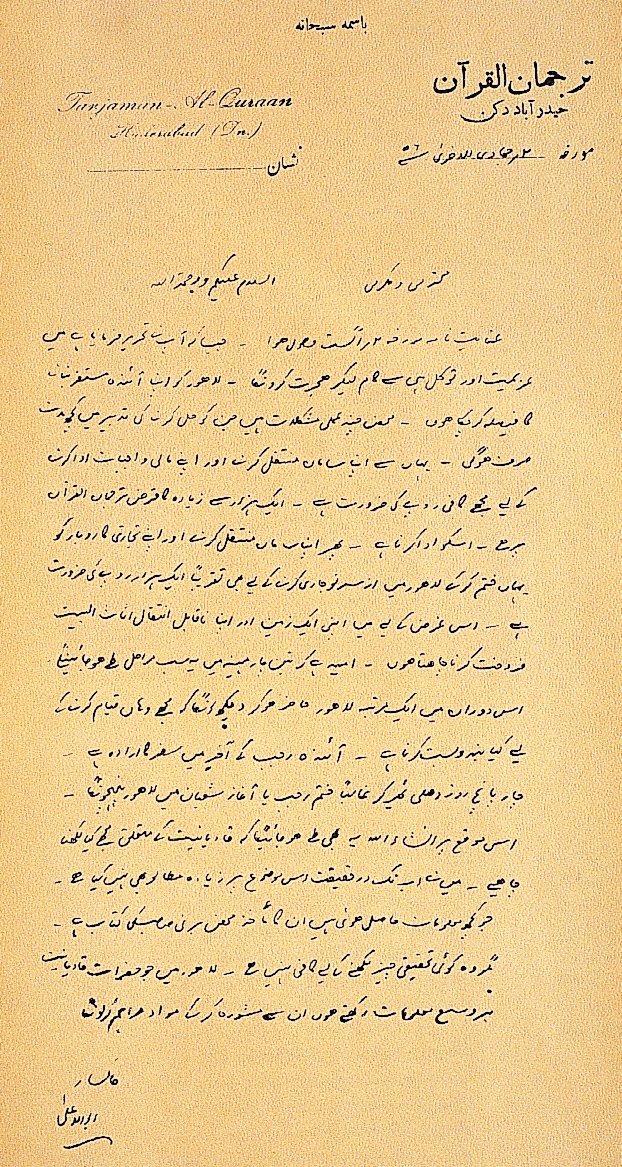 باسمہ سبحانہ
ترجمان القرآن
Tarjaman-Al-Quraan
حیدرآباد دکن
Hyderabad (Dn.)
مورخہ ۲ جمادی الاخریٰ ۵۶
نشان
محترمی و مکرمی السلام علیکم ورحمۃ اللہ
عنایت نامہ مورخہ ۲ اگست وصول ہوا ۔ جیسا کہ آپ نے تحریر فرمایا ہے میں
عزیمت اور توکل ہی سے کام لیکر ہجرت کرونگا ۔ لاہور کو اپنا آئندہ مستقر بنانے
کا فیصلہ کر چکا ہوں ۔ محض چند عملی مشکلات ہیں جن کو حل کرنے کی تدبیر میں کچھ مدت
صرف ہوگی ۔ یہاں سے اپنا سامان منتقل کرنے اور اپنے مالی واجبات ادا کرنے
کے لیے مجھے کافی روپے کی ضرورت ہے ۔ ایک ہزار سے زیادہ کا قرض ترجمان القرآن
پر ہے ۔ اسکو ادا کرنا ہے ۔ پھر اپنا سامان منتقل کرنے اور اپنے تجارتی کاروبار کو
یہاں ختم کرکے لاہور میں از سر نو جاری کرنے کے لیے بھی تقریباً ایک ہزار روپے کی ضرورت
ہے ۔ اس غرض کے لیے میں اپنی ایک زمین اور اپنا ناقابل انتقال اثاث البیت
فروخت کرنا چاہتا ہوں ۔ امید ہے کہ تین چار مہینہ میں یہ سب مراحل طے ہو جائینگے ۔
اس دوران میں ایک مرتبہ لاہور حاضر ہو کر دیکھونگا کہ مجھے وہاں قیام کرنے کے
لیے کیا بندوبست کرنا ہے ۔ آئندہ رجب کے آخر میں سفر کا ارادہ ہے ۔
چار پانچ روز دہلی ٹھیر کر غالباً ختم رجب یا آغاز شعبان میں لاہور پہنچونگا ۔
اس موقع پر انشاء اللہ یہ بھی طے ہو جائیگا کہ قادیانیت کے متعلق مجھے کیا لکھنا
چاہیے ۔ میں نے اب تک درحقیقت اس موضوع پر زیادہ مطالعہ بھی نہیں کیا ہے ۔
جو کچھ معلومات حاصل ہوئی ہیں ان کا ماخذ محض برنی صاحب کی کتاب ہے ۔
مگر وہ کوئی تحقیقی چیز لکھنے کے لیے کافی نہیں ہے ۔ لاہور میں جو حضرات قادیانیت
پر وسیع معلومات رکھتے ہوں ان سے مشورہ کر کے مواد فراہم کرونگا
خاکسار
ابوالاعلیٰ